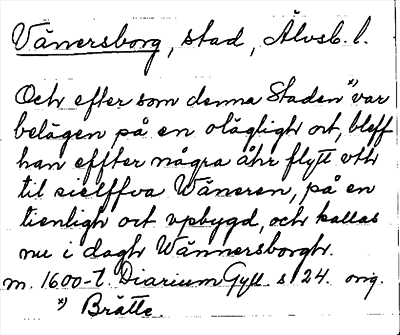 Vänersborg, stad, Älvsb. l.
Och efter som denna Staden x) var
belägen på en olägligh ort, bleff
han effter några åhr flytt vth
til sielffva Wäneren, på en
tienligh ort vpbygd, och kallas
nu i dagh Wännersborgh.
m. 1600-t. Diarium Gyll. s 124. orig.
x) Brätte.